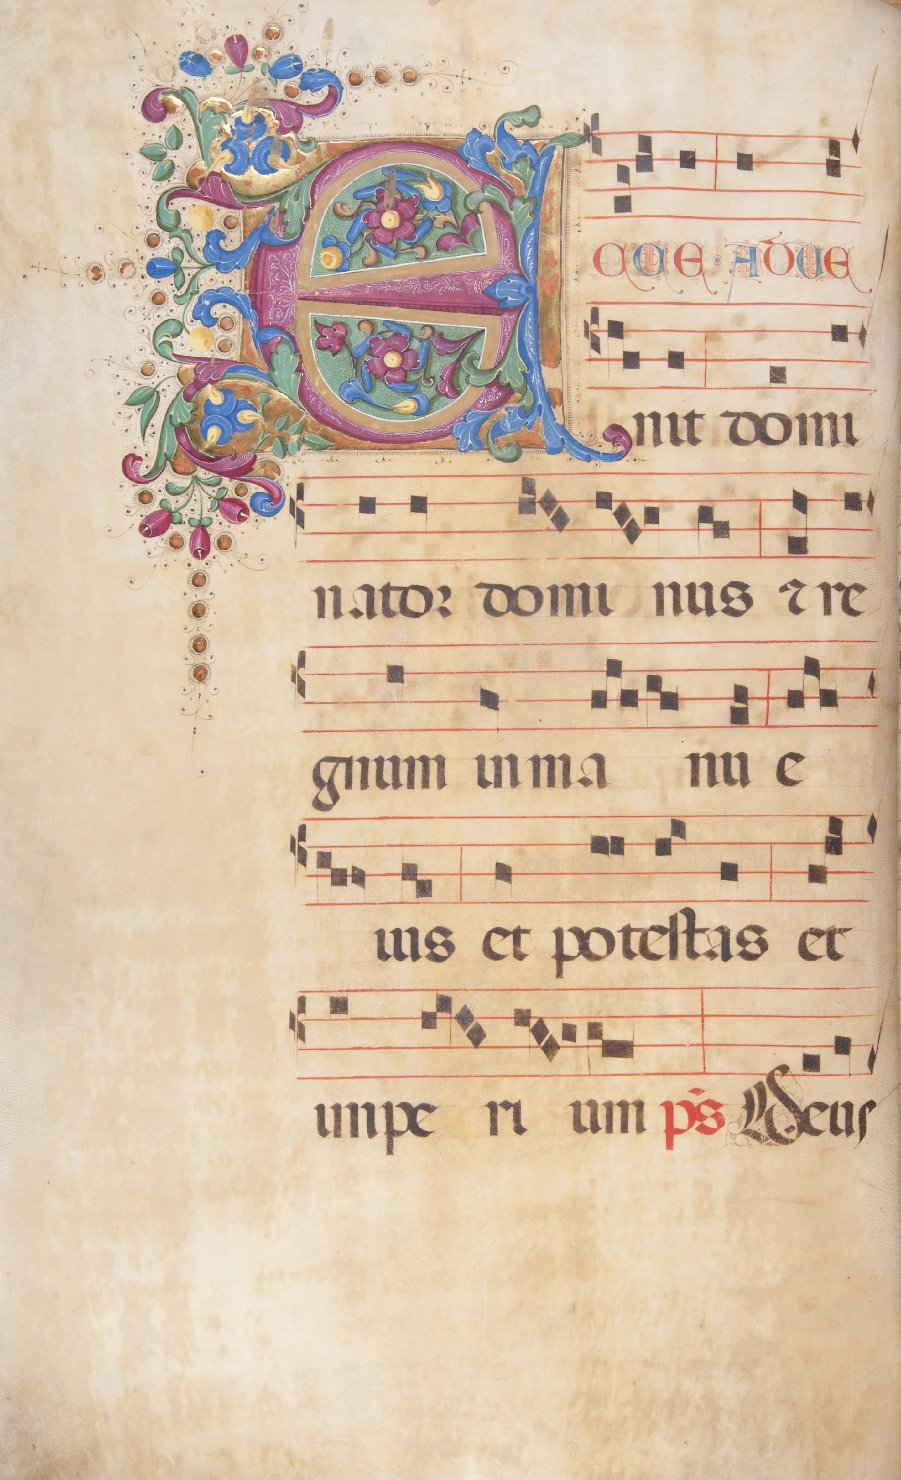 ECCE·ADVE
nit domi
nator domi nus ⁊ re
gnum in ma nu e
ius et potestas et
impe ri um ps̄ Deus